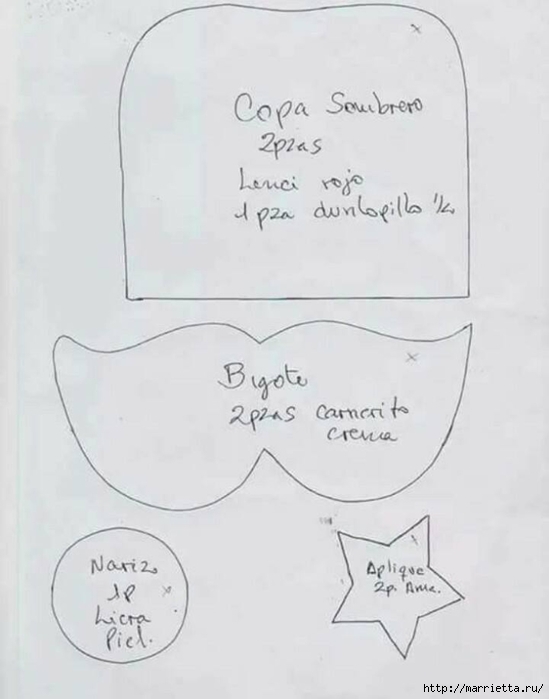 Copa Sombrero
2pzas
Lenci rojo
1 pza dunlopillo 1/2
Bigote
2pzas carnerito
crema
Nariz
1P
Licra
Piel.
Aplique
2p. Ama.
http://marrietta.ru/